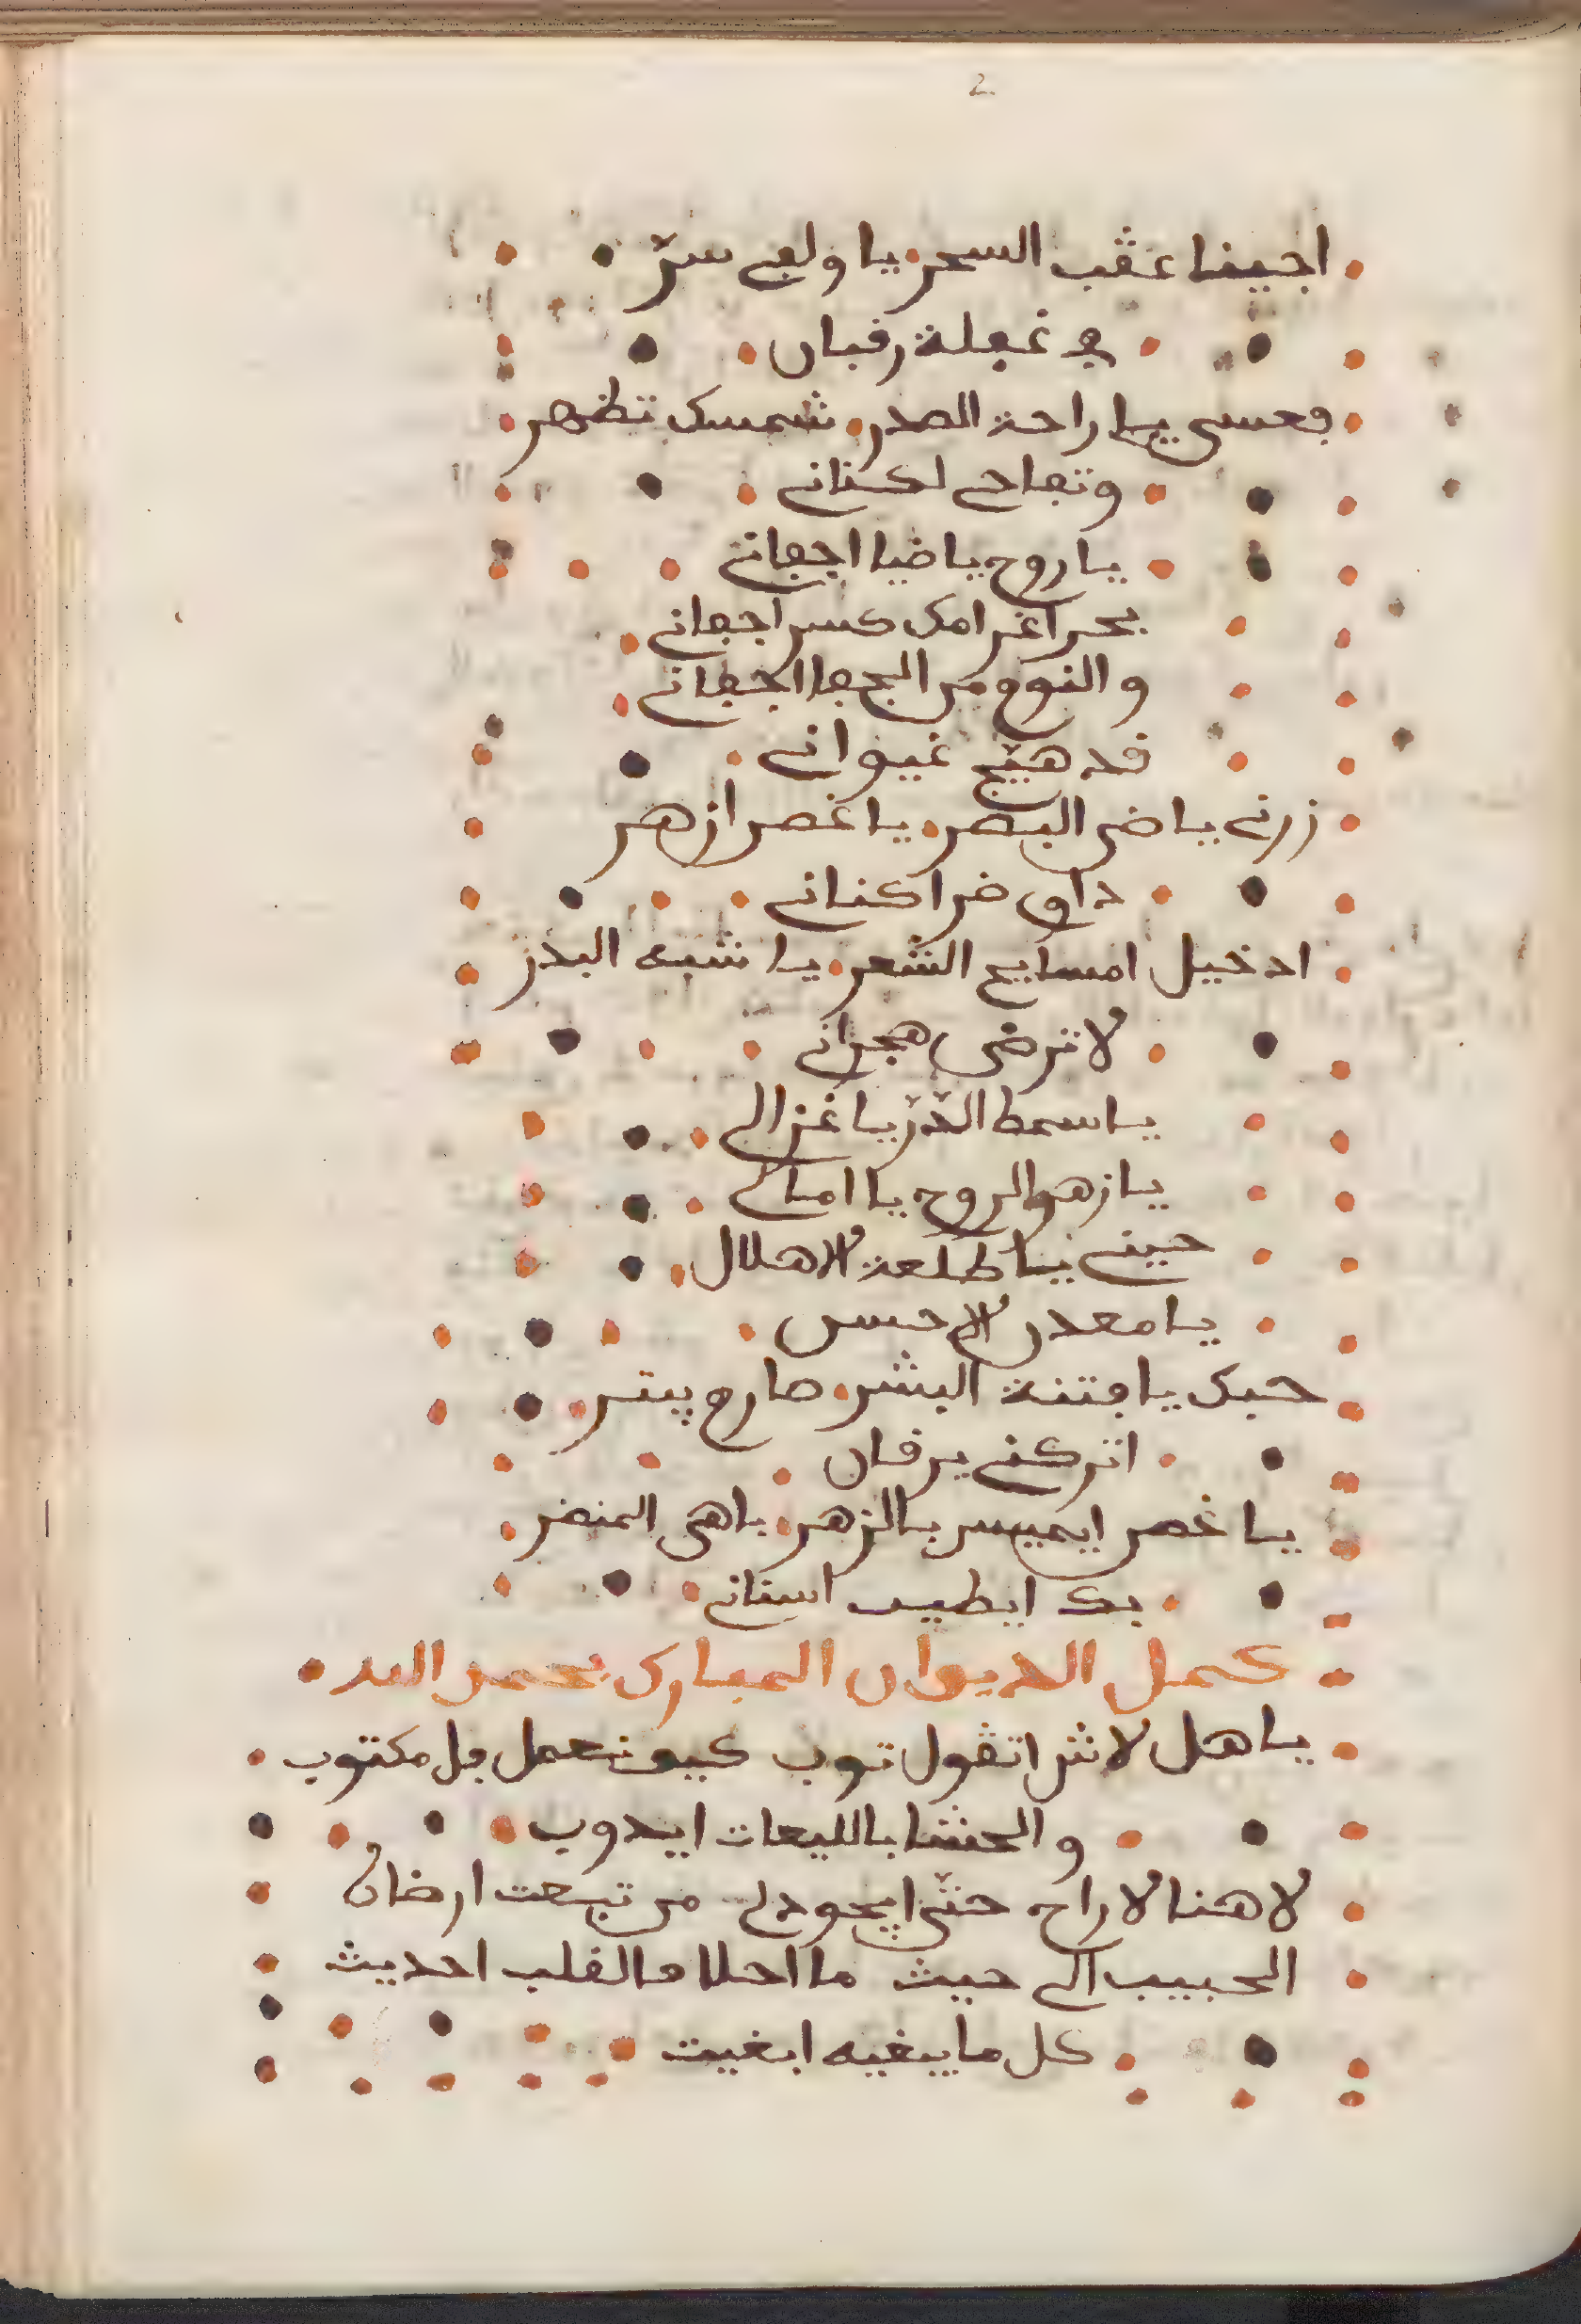 2
اجينا عقب السحر يا ولفي سرّ
في غفلة رقبان
فعسى يا راحة الصدر شمسك تظهر
وتفاجى لكناني
يا روح يا ضيا اجفاني
بحر اغرامك كسر اجفاني
والنوم من الجفا اجفاني
قد هيّج غيواني
زرني يا ضي البصر يا غصن ازهر
داوي ضر اكناني
ادخيل امسايح الشعر يا شبه البدر
لا ترضى هجراني
يا سمط الدّرّ يا غزالي
يا زهو الروح يا امالي
حيني يا طلعة لاهلال
يا معدن لاحسن
حبك يا فتنة البشر صارم يبتر
اتركني يرقان
يا غصن ايميس بالزهر باهي المنضر
بك ايطيب اسناني
كمل الديوان المبارك بحمد الله
يا هل لاش اتقول توب كيف نعمل فل مكتوب
والحشا بالليعات ايدوب
لا هنا لا راح حتّى ايجود لي من تبعت ارضاه
الحبيب الي حيث ما احلا فالقلب احديث
كل ما يبغيه ابغيت